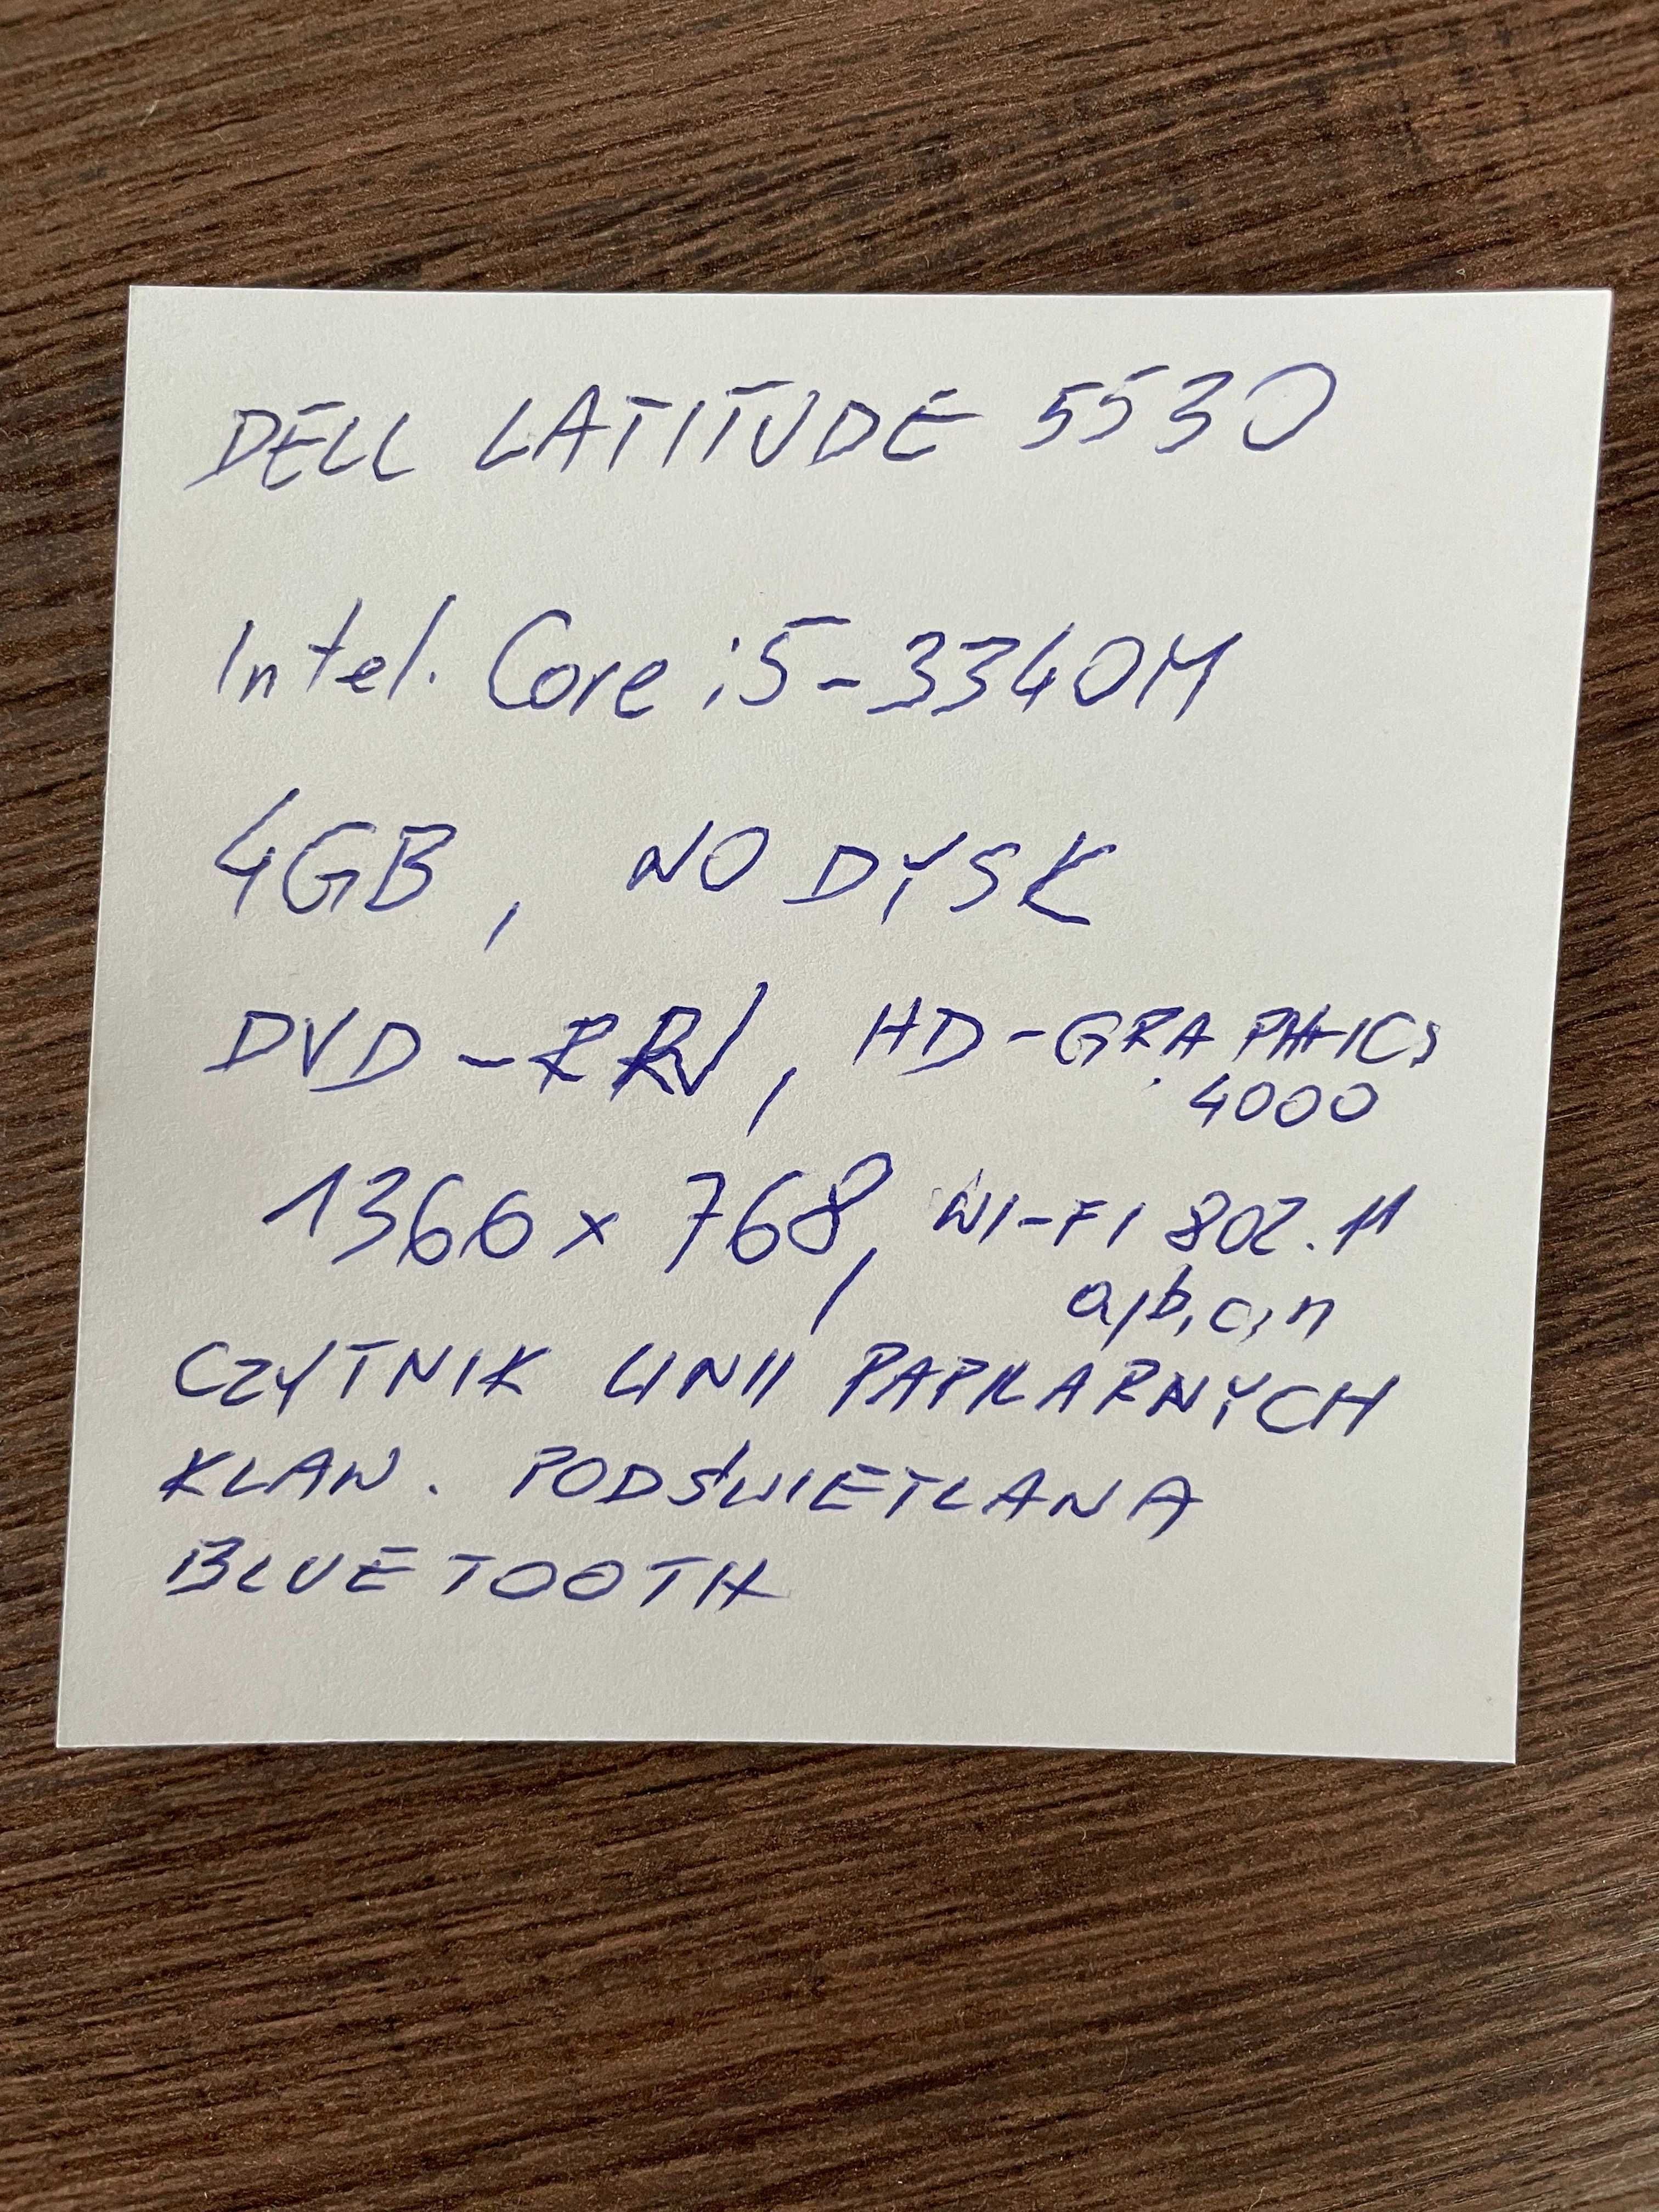 DELL LATITUDE 5530
Intel. Core i5-3340M
4GB, NO DYSK
DVD-RW, HD-GRAPHICS
4000
1366 x 768, WI-FI 802.11
a,b,c,n
CZYTNIK LINII PAPILARNYCH
KLAW. PODŚWIETLANA
BLUETOOTH